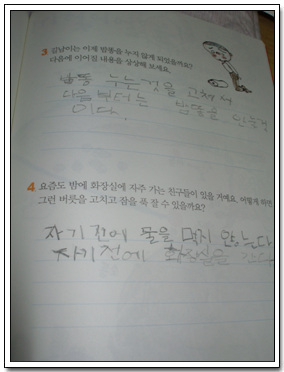 3 길남이는 이제 밤똥을 누지 않게 되었을까요?
다음에 이어질 내용을 상상해 보세요.
밤똥 누는 것을 고쳐서
다음부터는 밤똥을 안 눌것
이다.
4 요즘도 밤에 화장실에 자주 가는 친구들이 있을 거예요. 어떻게 하면
그런 버릇을 고치고 잠을 푹 잘 수 있을까요?
자기전에 물을 먹지 않는다
자기전에 화장실을 간다